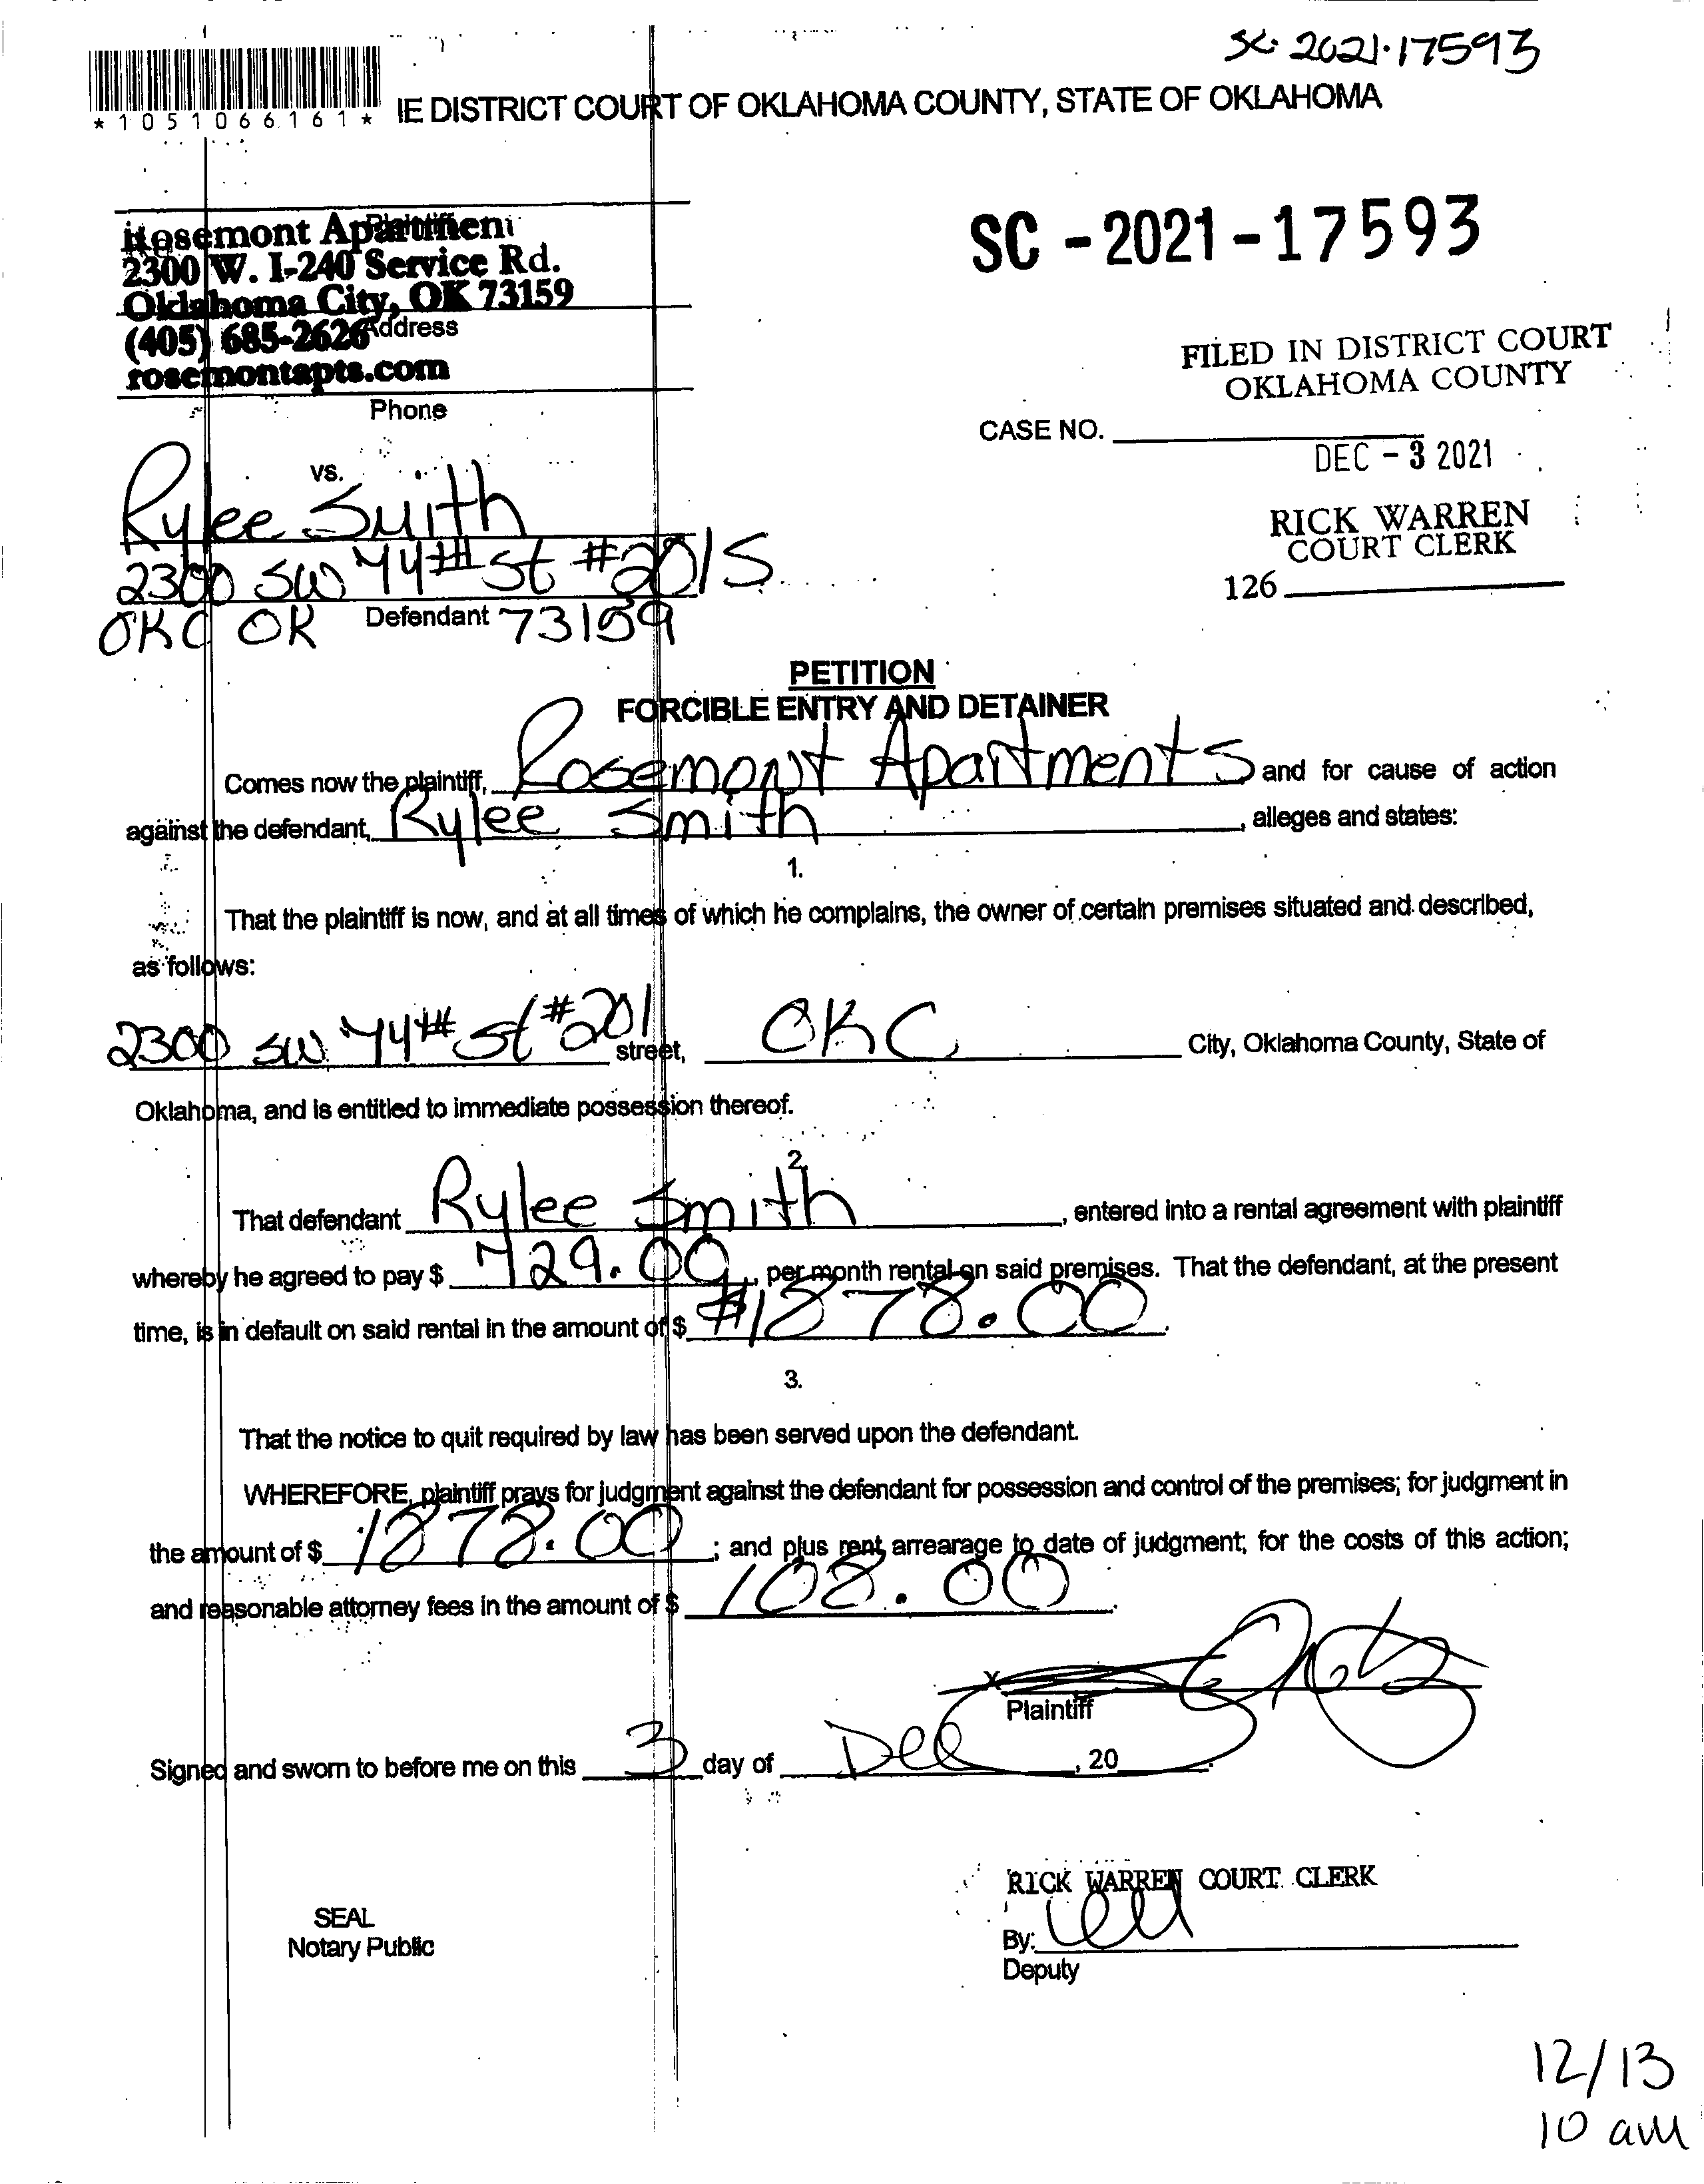 SC-2021-17593
*1051066161*
IE DISTRICT COURT OF OKLAHOMA COUNTY, STATE OF OKLAHOMA
SC-2021-17593
Plaintiff
Rosemont Apartment
2300 W. I-240 Service Rd.
Oklahoma City, OK 73159
(405) 685-2626 Address
rosemontapts.com
Phone
FILED IN DISTRICT COURT
OKLAHOMA COUNTY
CASE NO.
DEC - 3 2021
RICK WARREN
COURT CLERK
126
vs.
Rylee Smith
2300 SW 74th St #201S
OKC OK Defendant 73159
PETITION
FORCIBLE ENTRY AND DETAINER
Comes now the plaintiff, Rosemont Apartments and for cause of action
against the defendant, Rylee Smith, alleges and states:
1.
That the plaintiff is now, and at all times of which he complains, the owner of certain premises situated and described,
as follows:
2300 SW 74th St #201 street, OKC City, Oklahoma County, State of
Oklahoma, and is entitled to immediate possession thereof.
2.
That defendant Rylee Smith, entered into a rental agreement with plaintiff
whereby he agreed to pay $ 729.00, per month rental on said premises. That the defendant, at the present
time, is in default on said rental in the amount of $ #1878.00.
3.
That the notice to quit required by law has been served upon the defendant.
WHEREFORE, plaintiff prays for judgment against the defendant for possession and control of the premises; for judgment in
the amount of $ 1878.00; and plus rent arrearage to date of judgment; for the costs of this action;
and reasonable attorney fees in the amount of $ 108.00.
x
Plaintiff
Signed and sworn to before me on this 3 day of Dec, 20 .
RICK WARREN COURT CLERK
SEAL
Notary Public
By:
Deputy
12/13
10 am